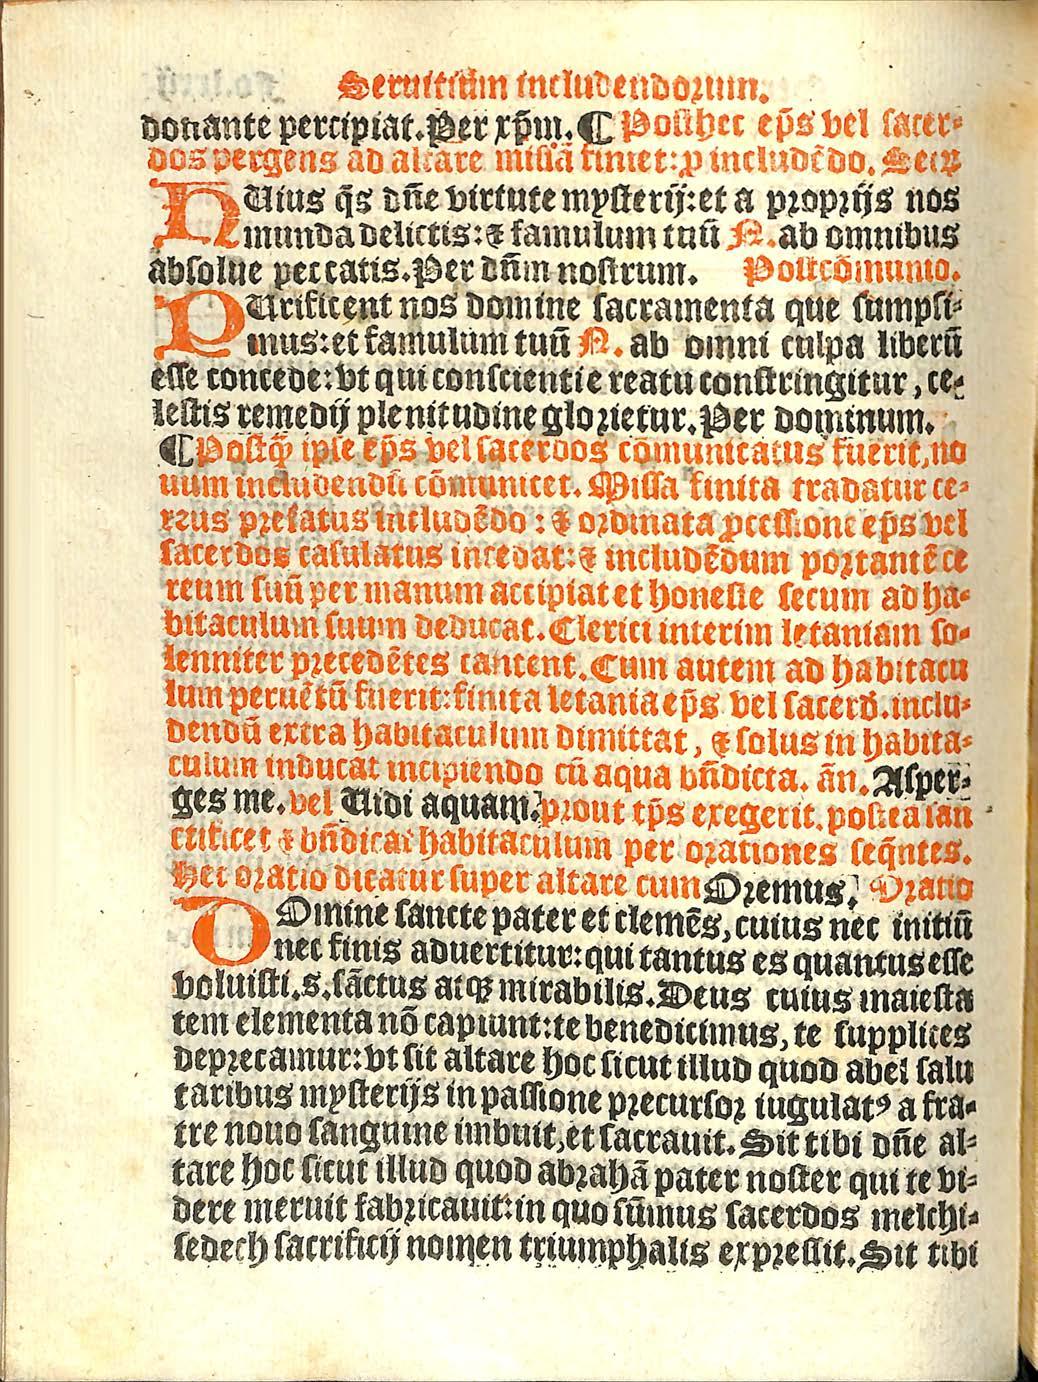 Seruitiũm includendorum.
donante percipiat. Per xp̃m. ¶ Posthec ep̃s vel sacer⸗
dos pergens ad altare missã finiet: ꝓ includẽdo. Secr̃
HUius q̃s dñe virtute mysterij: et a proprijs nos
munda delictis: ⁊ famulum tuũ N. ab omnibus
absolue peccatis. Per dñm nostrum. Postcõmunio.
PUrificent nos domine sacramenta que sumpsi⸗
mus: et famulum tuũ N. ab omni culpa liberũ
esse concede: vt qui conscientie reatu constringitur, ce⸗
lestis remedij plenitudine glorietur. Per dominum.
¶ Postq̃ ipse ep̃s vel sacerdos cõmunicatus fuerit, no
uum includendũ cõmunicet. Missa finita tradatur ce⸗
reus prefatus includẽdo: ⁊ ordinata ꝓcessione ep̃s vel
sacerdos casulatus incedat: ⁊ includẽdum portantẽ ce
reum suũ per manum accipiat et honeste secum ad ha⸗
bitaculum suum deducat. Clerici interim letaniam so⸗
lenniter precedẽtes cantent. Cum autem ad habitacu
lum peruẽtũ fuerit: finita letania ep̃s vel sacerd. inclu⸗
dendũ extra habitaculum dimittat, ⁊ solus in habita⸗
culum inducat incipiendo cũ aqua bñdicta. ãn. Asper⸗
ges me. vel Uidi aquam. prout tp̃s exegerit. postea san
ctificet ⁊ bñdicat habitaculum per orationes seq̃ntes.
Hec oratio dicatur super altare cum Oremus. Oratio
DOmine sancte pater et clemẽs, cuius nec initiũ
nec finis aduertitur: qui tantus es quantus esse
voluisti. s. sãctus atqꝫ mirabilis. Deus cuius maiesta
tem elementa nõ capiunt: te benedicimus, te supplices
deprecamur: vt sit altare hoc sicut illud quod abel salu
taribus mysterijs in passione precursor iugulatꝰ a fra⸗
tre nouo sanguine imbuit, et sacrauit. Sit tibi dñe al⸗
tare hoc sicut illud quod abrahã pater noster qui te vi⸗
dere meruit fabricauit: in quo sũmus sacerdos melchi⸗
sedech sacrificij nomen triumphalis expressit. Sit tibi